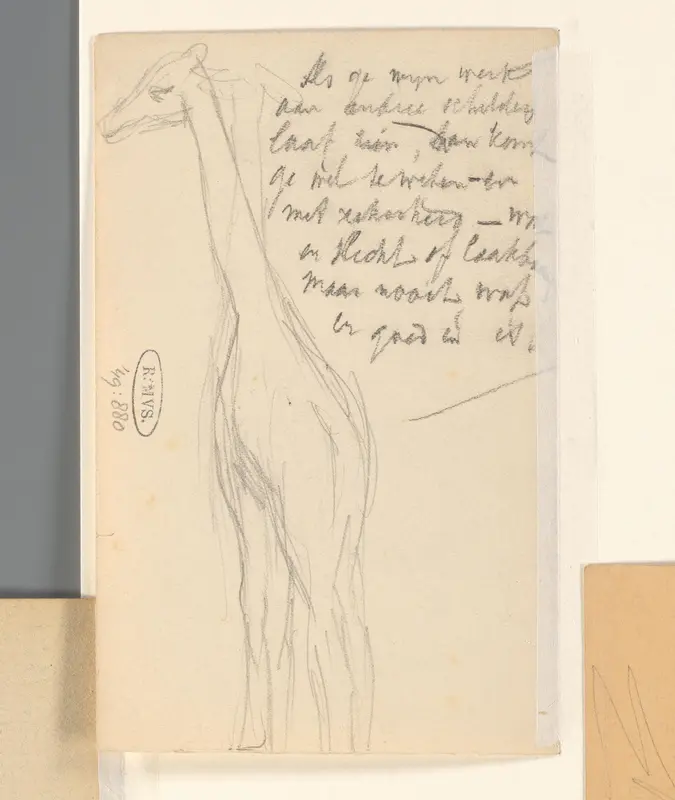 Als ge mijn werk
aan andere schilders
laat zien, dan komt
ge wel te weten – en
met zekerheid – wat
er slecht of laakb
maar nooit wat
er goed in is.
R:MVS.
49:880